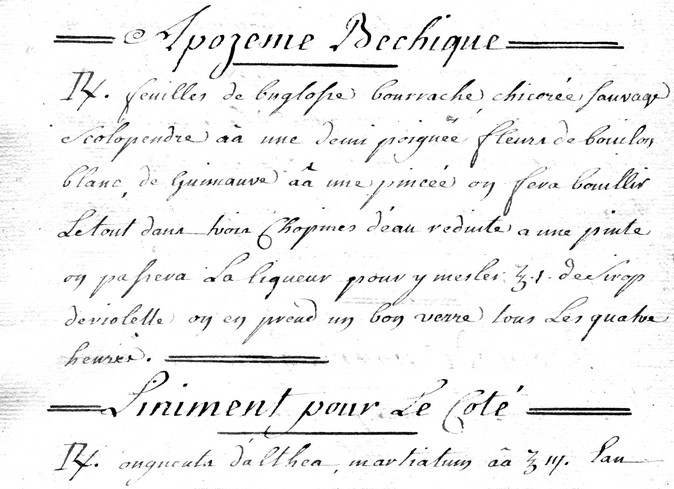 Apozeme Bechique
℞. feuilles de buglosse bourrache, chicorée sauvage
scolopendre aā une demi poignée, fleurs de bouilon
blanc, de Guimauve aā une pincée on fera bouillir
Le tout dans trois Chopines d'éau reduite a une pinte
on passera La liqueur pour y mesler ℥.1. de Sirop
de violette on en prend un bon verre tous Les quatre
heures.
Liniment pour Le Coté
℞. onguents d'althea, martiatum aā ℥ iij. Eau